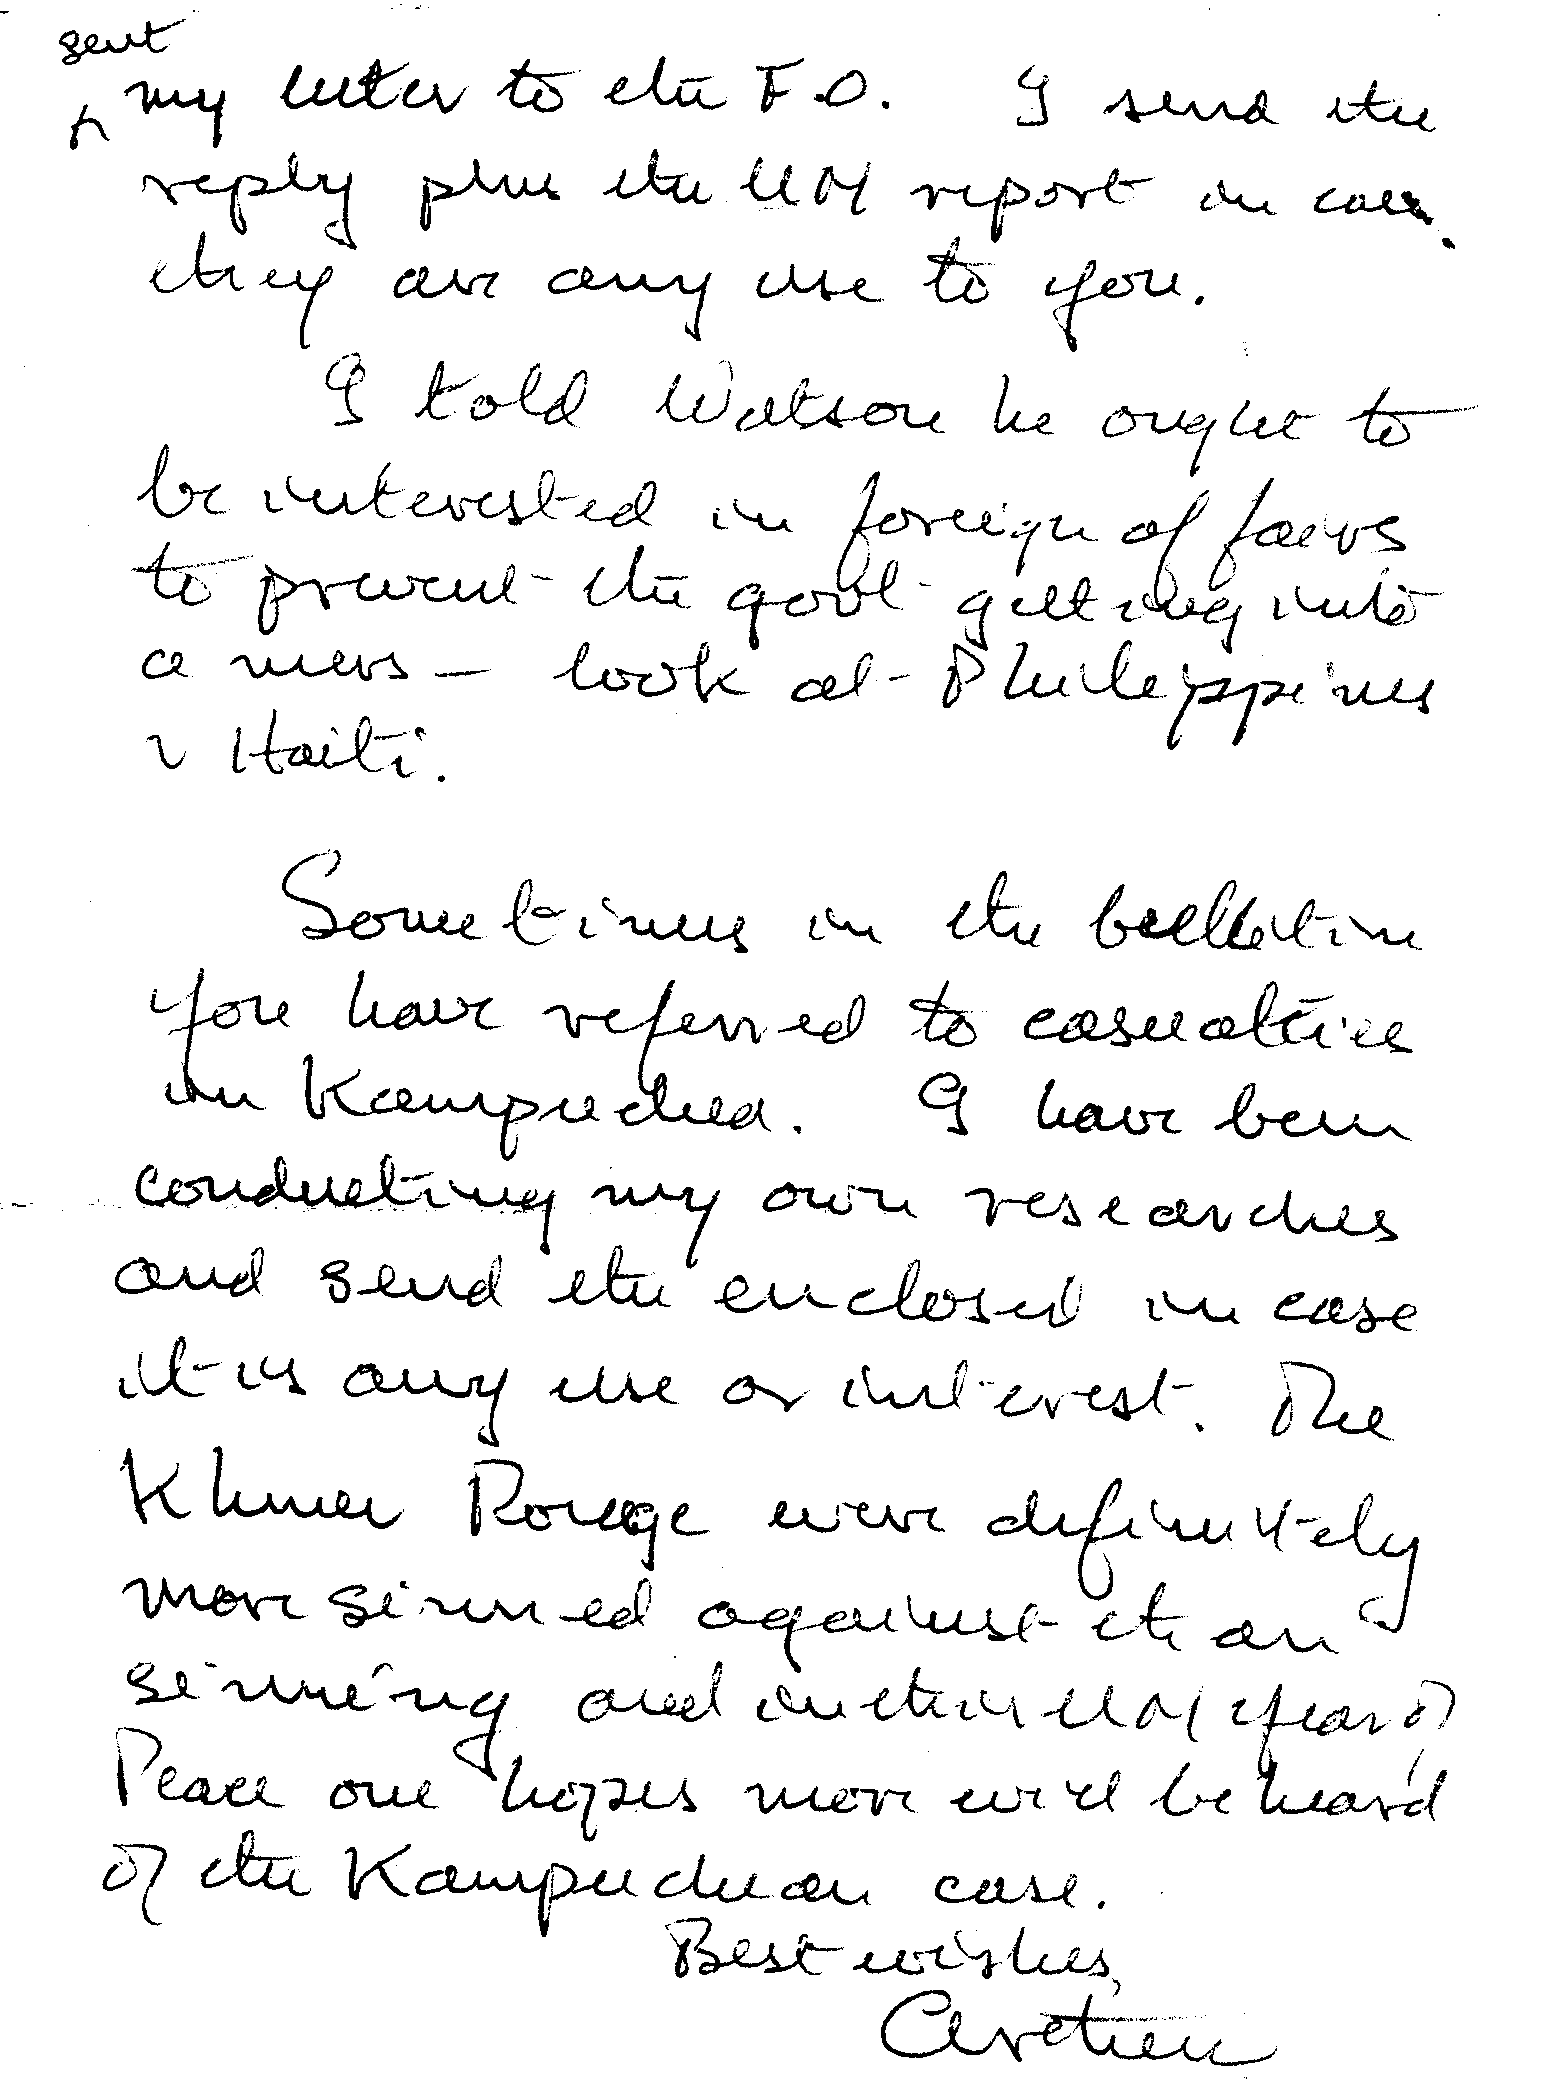 sent
my letter to the F.O. I send the
reply plus the UN report in case
they are any use to you.
I told Watson he ought to
be interested in foreign affairs
to prevent the govt getting into
a mess – look at Philippines
& Haiti.
Sometimes in the bulletin
you have referred to casualties
in Kampuchea. I have been
conducting my own researches
and send the enclosed in case
it is any use or interest. The
Khmer Rouge were definitely
more sinned against than
sinning and in this UN year of
Peace one hopes more will be heard
of the Kampuchean case.
Best wishes,